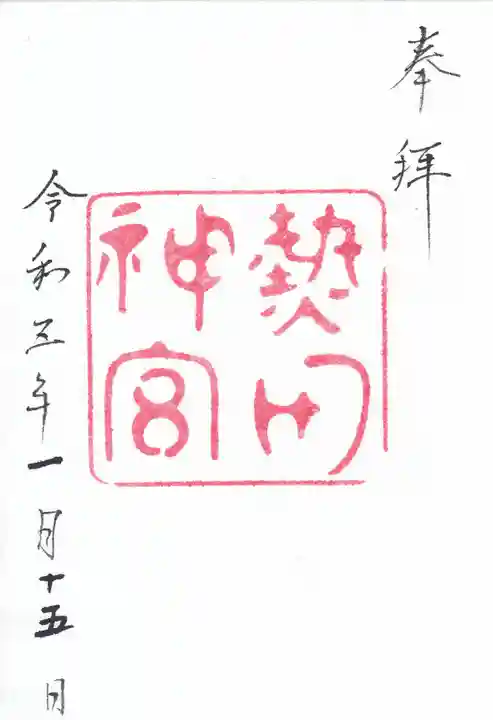 奉拝
熱田
神宮
令和三年一月十五日